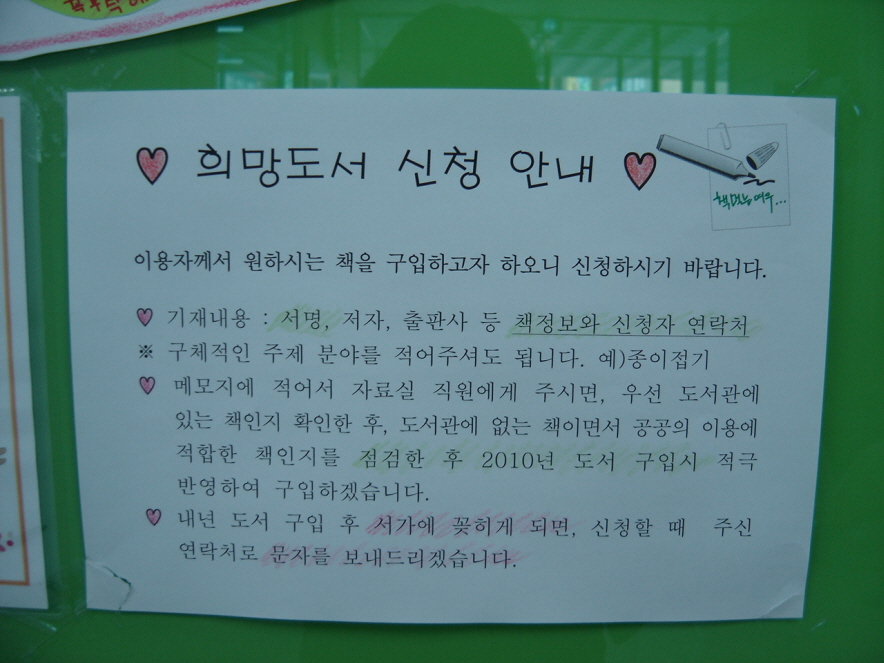 ♥ 희망도서 신청 안내 ♥
이용자께서 원하시는 책을 구입하고자 하오니 신청하시기 바랍니다.
♥ 기재내용 : 서명, 저자, 출판사 등 책정보와 신청자 연락처
※ 구체적인 주제 분야를 적어주셔도 됩니다. 예)종이접기
♥ 메모지에 적어서 자료실 직원에게 주시면, 우선 도서관에
있는 책인지 확인한 후, 도서관에 없는 책이면서 공공의 이용에
적합한 책인지를 점검한 후 2010년 도서 구입시 적극
반영하여 구입하겠습니다.
♥ 내년 도서 구입 후 서가에 꽂히게 되면, 신청할 때 주신
연락처로 문자를 보내드리겠습니다.